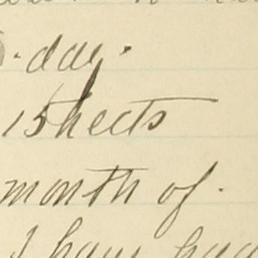 day.
15 heets
month of.
I have had